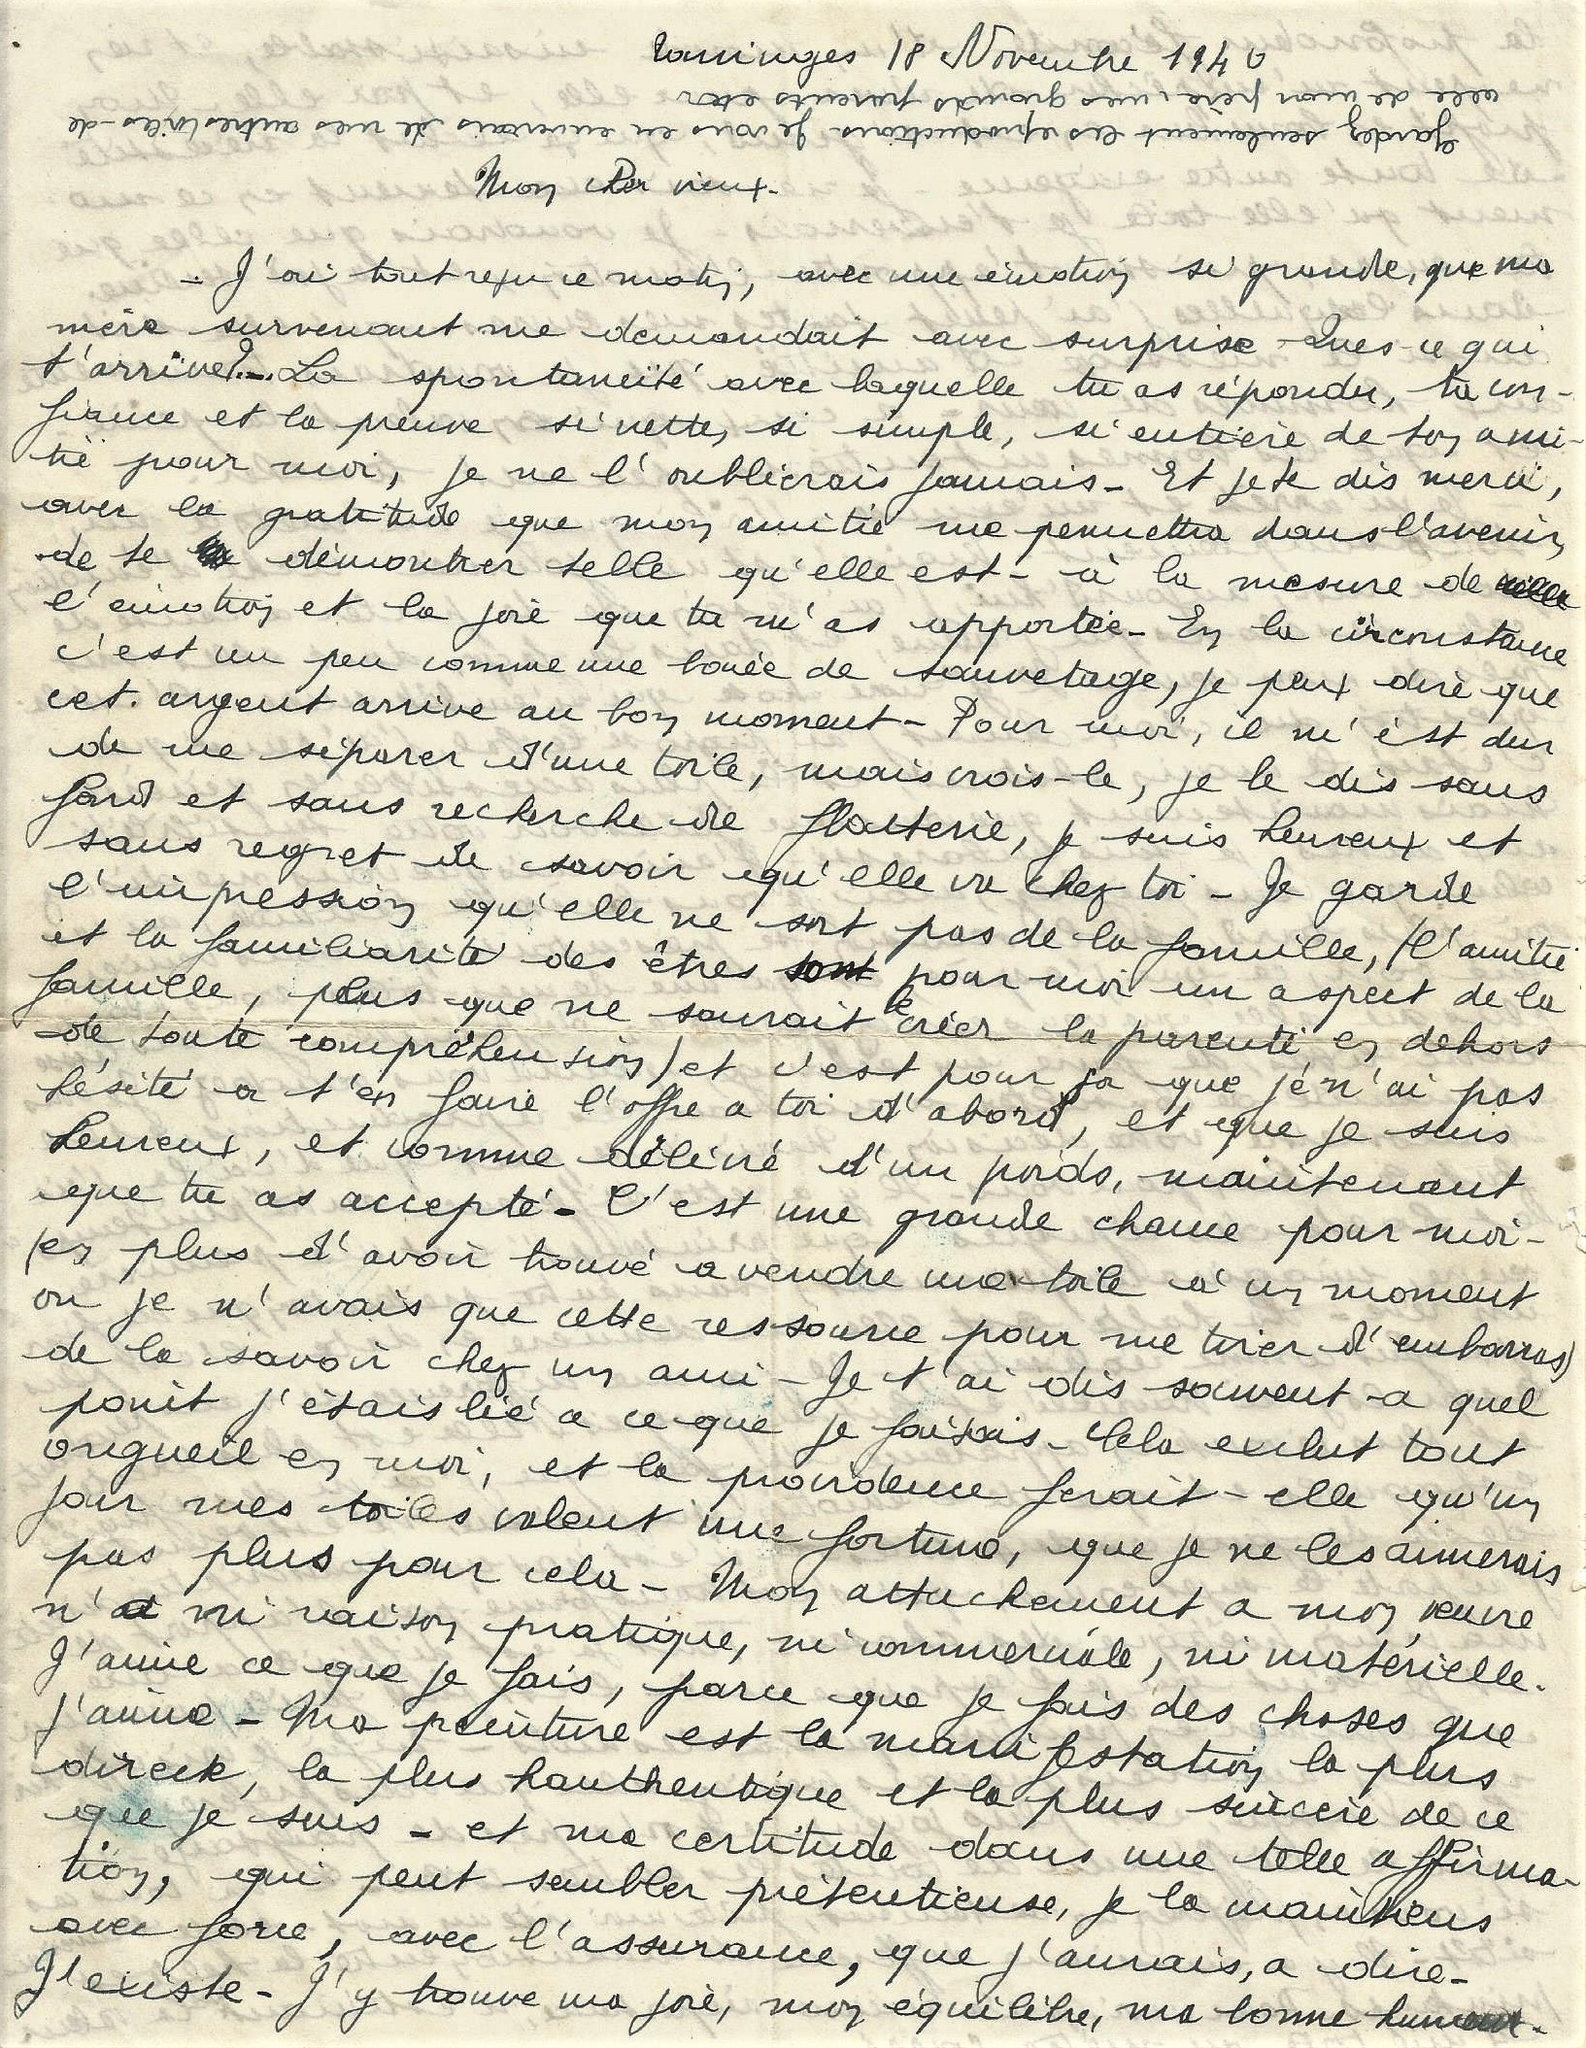 18 Novembre 1940
Gardez seulement les reproductions. Je vous en enverrais de mes autres toiles - de
celle de mon père, mes grands parents etc.
Mon cher vieux.
- J'ai tout reçu ce matin, avec une émotion si grande, que ma
mère survenant me demandait avec surprise - Ques ce qui
t'arrive?... La spontaneïté avec laquelle tu as répondu, ta con-
fiance et la preuve, si nette, si simple, si entière de ton ami-
tié pour moi, je ne l'oublierais jamais - Et je te dis merci,
avec la gratitude que mon amitié me permettra dans l'avenir,
de te démontrer telle qu'elle est - à la mesure de
l'émotion et la joie que tu m'as apportée - En la circonstance
c'est un peu comme une bouée de sauvetage, je peux dire que
cet argent arrive au bon moment - Pour moi, il m'est dur
de me séparer d'une toile, mais crois-le, je le dis sans
fard et sans recherche de flatterie, je suis heureux et
sans regret de savoir qu'elle va chez toi - Je garde
l'impression qu'elle ne sort pas de la famille, (l'amitié
et la familiarité des êtres sont pour moi un aspect de la
famille, plus que ne saurait le créer la parenté en dehors
de toute compréhension) et c'est pour ça que je n'ai pas
hésité a t'en faire l'offre a toi d'abord, et que je suis
heureux, et comme délivré d'un poids, maintenant
que tu as accepté - C'est une grande chance pour moi -
(en plus d'avoir trouvé a vendre ma toile à un moment
ou je n'avais que cette ressource pour me tirer d'embarras)
de la savoir chez un ami - Je t'ai dis souvent a quel
point j'étais lié a ce que je faisais - Cela exclut tout
orgueil en moi, et la providence ferait-elle qu'un
jour mes toiles valent une fortune, que je ne les aimerais
pas plus pour cela - Mon attachement a mon œuvre
n'a ni raison pratique, ni commerciale, ni matérielle.
J'aime ce que je fais, parce que je fais des choses que
j'aime - Ma peinture est la manifestation la plus
directe, la plus hauthentique et la plus sincère de ce
que je suis - et ma certitude dans une telle affirma-
tion, qui peut sembler prétentieuse, je la maintiens
avec force, avec l'assurance, que j'aurais, a dire -
J'existe - J'y trouve ma joie, mon équilibre, ma bonne humeur.